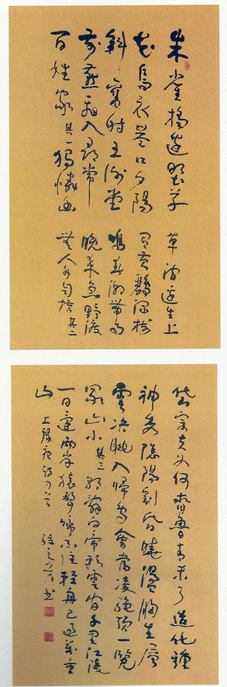 朱雀橋邊野草
花烏衣巷口夕陽
斜舊時王謝堂
前燕飛入尋常
百姓家其一獨憐幽
草澗邊生上
有黃鸝深樹
鳴春潮帶雨
晚來急野渡
無人舟自橫其二
岱宗夫如何齊魯青未了造化鍾
神秀陰陽割昏曉盪胸生層
雲決眥入歸鳥會當凌絕頂一覽
眾山小其三朝辭白帝彩雲間千里江陵
一日還兩岸猿聲啼不住輕舟已過萬重
山
上錄唐詩四首
書